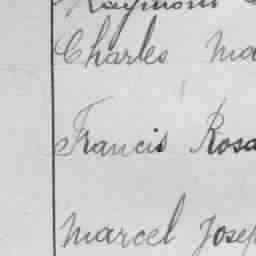 Raymond
Charles Ma
Francis Rosa
Marcel Josep